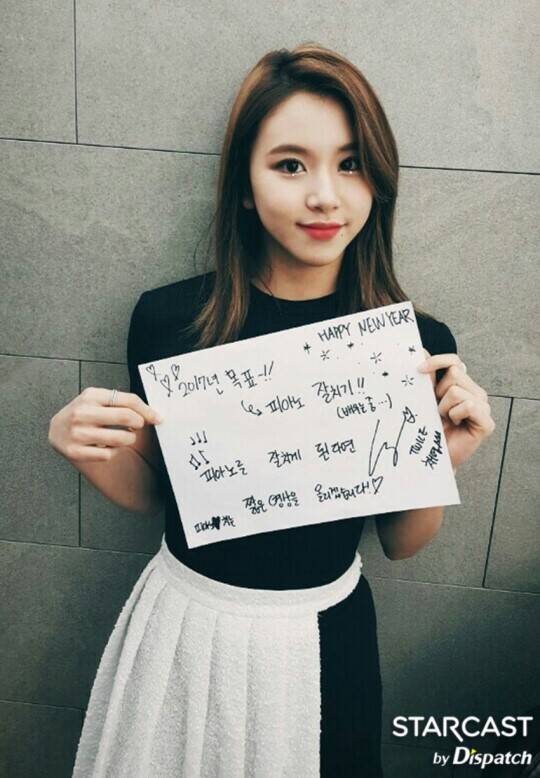 HAPPY NEW YEAR
2017년 목표-!!
↳ 피아노 잘치기!!
(배우는 중...)
피아노를 잘치게 된다면
짧은 영상을 올리겠습니다!♡
TWICE
STARCAST
by Dispatch